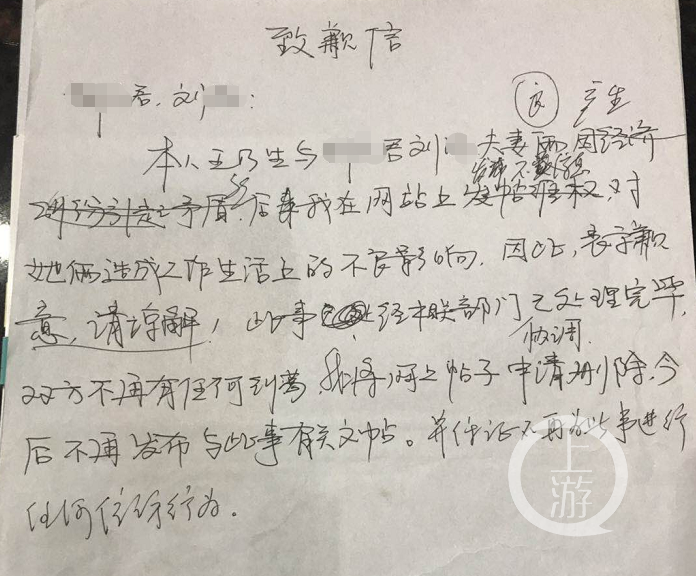 致歉信
君、刘：
应 产生
本人王乃生与 君刘 夫妻俩因经济
发布不实信息
矛盾，后来我在网站上发帖维权，对
她俩造成工作生活上的不良影响。因此，表示歉
意，请谅解！此事已经相关部门已处理完毕，
协调
双方不再有任何纠葛，我将网上帖子申请删除，今
后不再发布与此事有关文帖。并保证不再为此事进行
任何信访行为。
上游